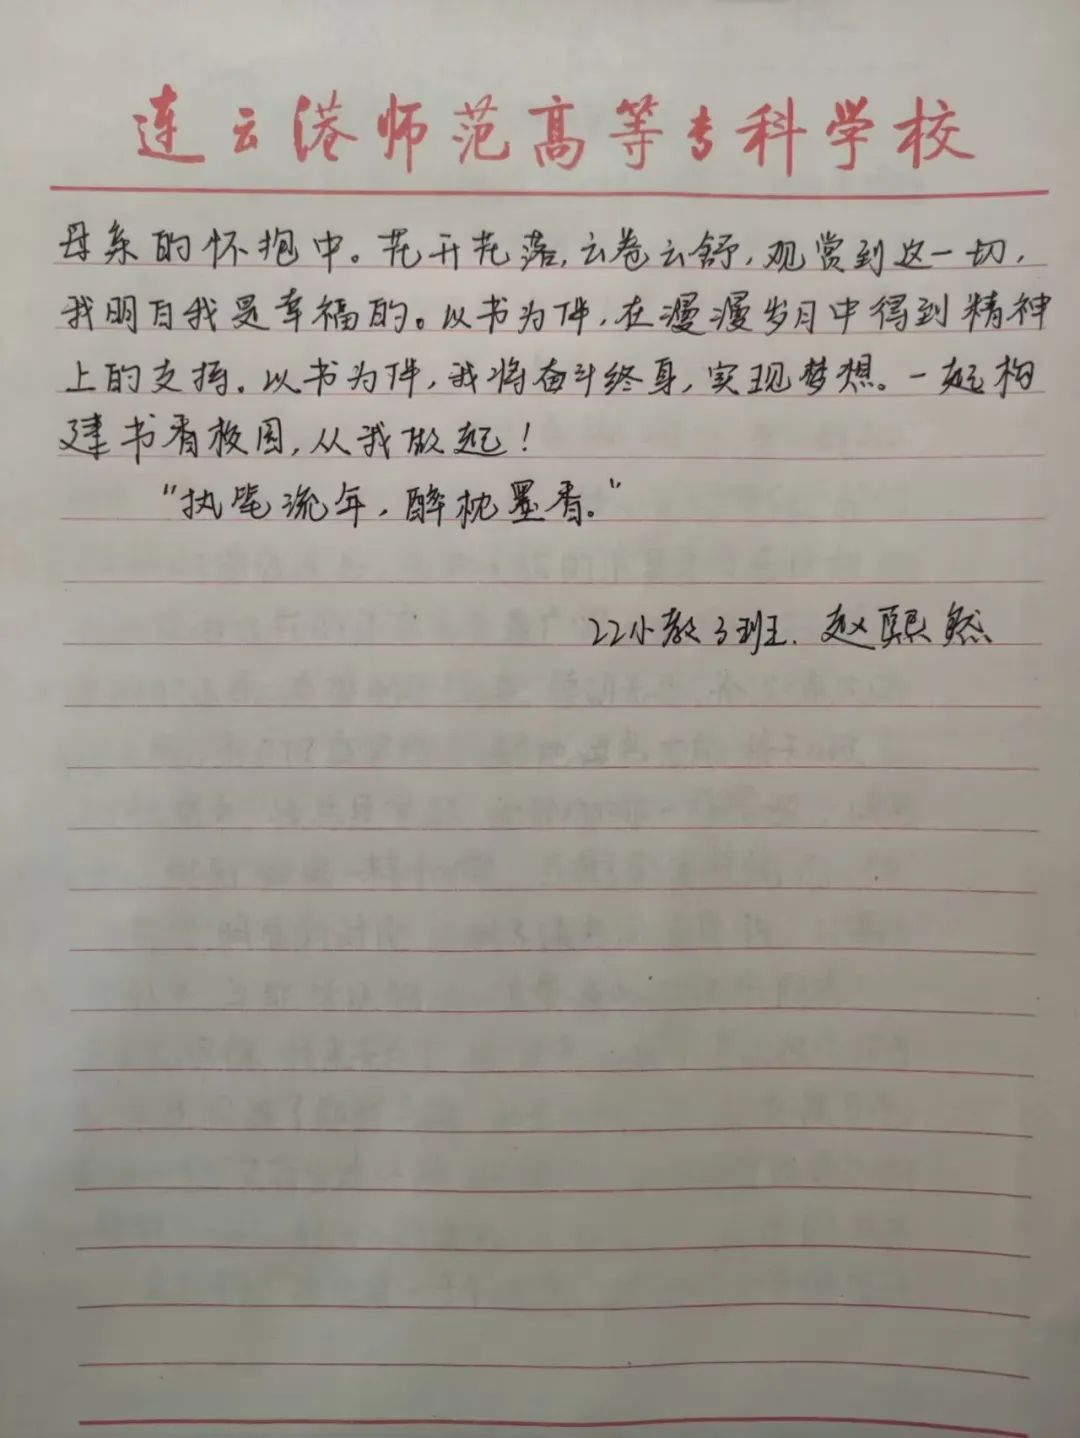 连云港师范高等专科学校
母亲的怀抱中。花开花落,云卷云舒,观赏到这一切,
我明白我是幸福的。以书为伴,在漫漫岁月中得到精神
上的支持。以书为伴,我将奋斗终身,实现梦想。一起构
建书香校园,从我做起!
"执笔流年,醉枕墨香。"
22小教3班. 赵熙然